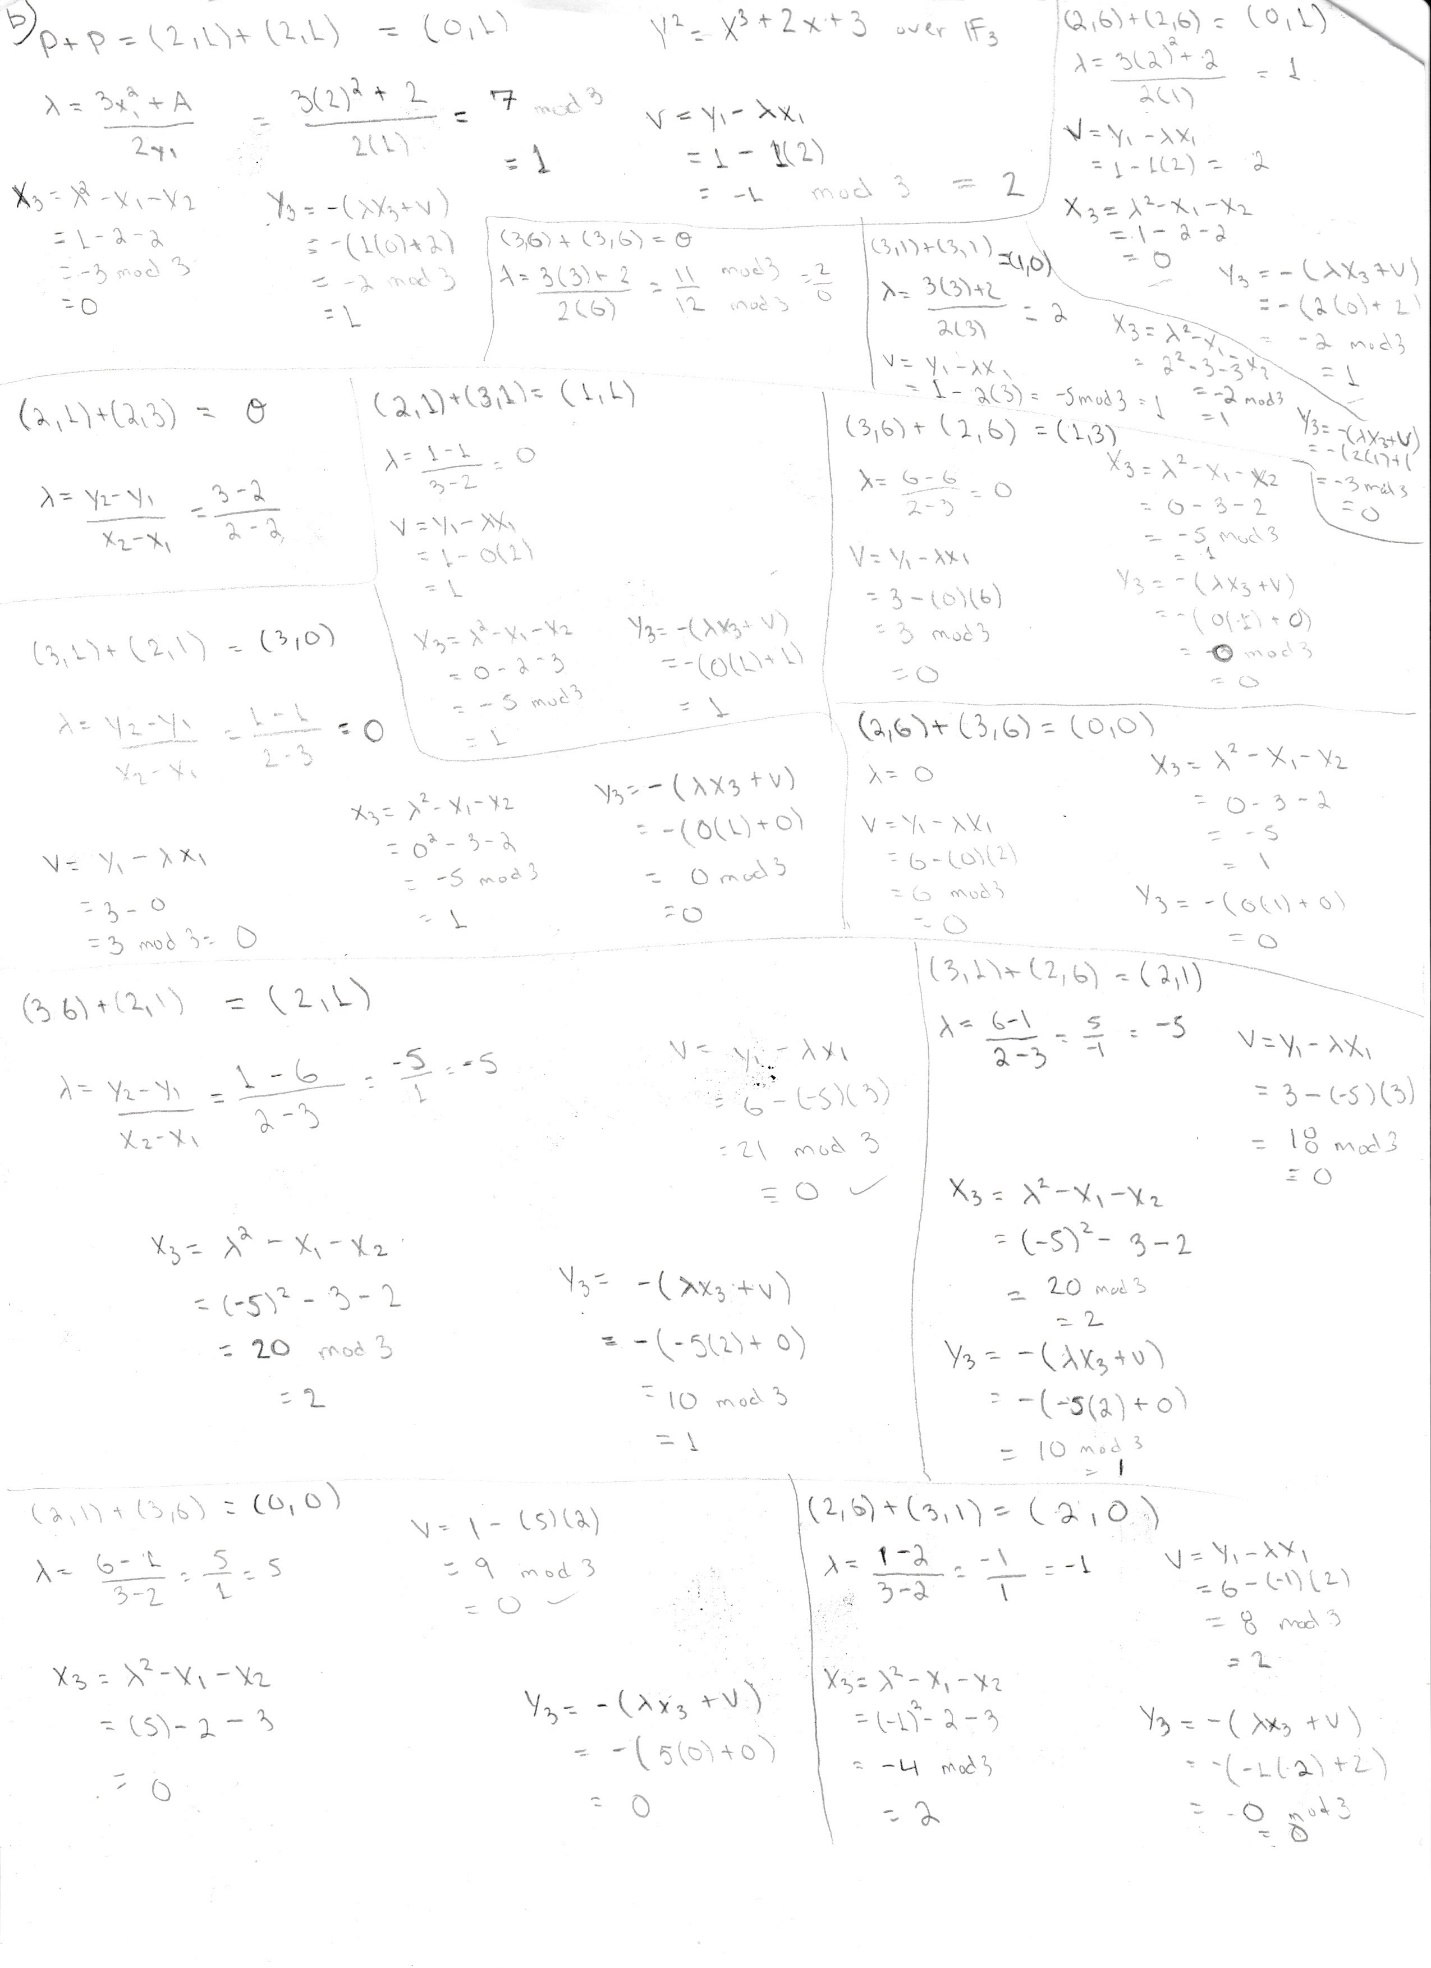 b)
P+P = (2,1)+(2,1) = (0,1)
Y² = X³+2x+3 over IF₃
λ = 3x₁²+A / 2y₁ = 3(2)²+2 / 2(1) = 7 mod 3
= 1
V = y₁-λx₁
= 1-1(2)
= -1 mod 3 = 2
X₃ = λ²-x₁-x₂
= 1-2-2
= -3 mod 3
= 0
Y₃ = -(λx₃+v)
= -(1(0)+2)
= -2 mod 3
= 1
(2,6)+(2,6) = (0,1)
λ = 3(2)²+2 / 2(1) = 1
V = y₁-λx₁
= 1-1(2) = 2
X₃ = λ²-x₁-x₂
= 1-2-2
= 0
Y₃ = -(λx₃+v)
= -(2(0)+2)
= -2 mod 3
= 1
(3,6)+(3,6) = O
λ = 3(3)+2 / 2(6) = 11 mod 3 / 12 mod 3 = 2/0
(3,1)+(3,1) = (1,0)
λ = 3(3)+2 / 2(3) = 2
V = y₁-λx₁
= 1-2(3) = -5 mod 3 = 1
X₃ = λ²-x₁-x₂
= 2²-3-3
= -2 mod 3
= 1
Y₃ = -(λx₃+v)
= -(2(1)+1
= -3 mod 3
= 0
(2,1)+(2,3) = O
λ = y₂-y₁ / x₂-x₁ = 3-2 / 2-2
(2,1)+(3,1) = (1,1)
λ = 1-1 / 3-2 = 0
V = y₁-λx₁
= 1-0(2)
= 1
X₃ = λ²-x₁-x₂
= 0-2-3
= -5 mod 3
= 1
Y₃ = -(λx₃+v)
= -(0(1)+1)
= 1
(3,6)+(2,6) = (1,3)
λ = 6-6 / 2-3 = 0
V = y₁-λx₁
= 3-(0)(6)
= 3 mod 3
= 0
X₃ = λ²-x₁-x₂
= 0-3-2
= -5 mod 3
= 1
Y₃ = -(λx₃+v)
= -(0(1)+0)
= -0 mod 3
= 0
(3,1)+(2,1) = (3,0)
λ = y₂-y₁ / x₂-x₁ = 1-1 / 2-3 = 0
V = y₁-λx₁
= 3-0
= 3 mod 3 = 0
X₃ = λ²-x₁-x₂
= 0²-3-2
= -5 mod 3
= 1
Y₃ = -(λx₃+v)
= -(0(1)+0)
= 0 mod 3
= 0
(2,6)+(3,6) = (0,0)
λ = 0
V = y₁-λx₁
= 6-(0)(2)
= 6 mod 3
= 0
X₃ = λ²-x₁-x₂
= 0-3-2
= -5
= 1
Y₃ = -(0(1)+0)
= 0
(3 6)+(2,1) = (2,1)
λ = y₂-y₁ / x₂-x₁ = 1-6 / 2-3 = -5/1 = -5
V = y₁-λx₁
= 6-(-5)(3)
= 21 mod 3
= 0 ✓
X₃ = λ²-x₁-x₂
= (-5)²-3-2
= 20 mod 3
= 2
Y₃ = -(λx₃+v)
= -(-5(2)+0)
= 10 mod 3
= 1
(3,1)+(2,6) = (2,1)
λ = 6-1 / 2-3 = 5/-1 = -5
V = y₁-λx₁
= 3-(-5)(3)
= 18 mod 3
= 0
X₃ = λ²-x₁-x₂
= (-5)²-3-2
= 20 mod 3
= 2
Y₃ = -(λx₃+v)
= -(-5(2)+0)
= 10 mod 3
= 1
(2,1)+(3,6) = (0,0)
λ = 6-1 / 3-2 = 5/1 = 5
V = 1-(5)(2)
= 9 mod 3
= 0 ✓
X₃ = λ²-x₁-x₂
= (5)-2-3
= 0
Y₃ = -(λx₃+v)
= -(5(0)+0)
= 0
(2,6)+(3,1) = (2,0)
λ = 1-2 / 3-2 = -1/1 = -1
V = y₁-λx₁
= 6-(-1)(2)
= 8 mod 3
= 2
X₃ = λ²-x₁-x₂
= (-1)²-2-3
= -4 mod 3
= 2
Y₃ = -(λx₃+v)
= -(-1(2)+2)
= -0 mod 3
= 0